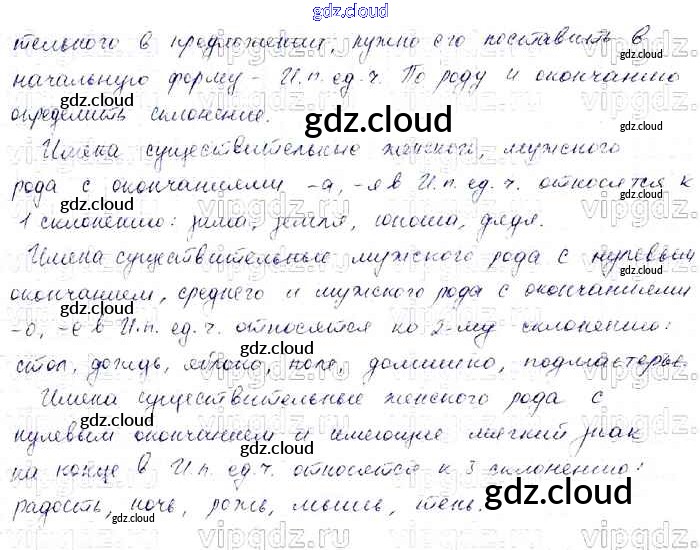 gdz.cloud
тельного в предложении, нужно его поставить в
начальную форму - И.п. ед.ч. По роду и окончанию
определить склонение.
Имена существительные женского, мужского
рода с окончаниями -а, -я в И.п. ед.ч. относятся к
1 склонению: зима, земля, юноша, дядя.
Имена существительные мужского рода с нулевым
окончанием, среднего и мужского рода с окончаниями
-о, -е в И.п. ед.ч. относятся ко 2-му склонению:
стол, дождь, яблоко, поле, домишко, подмастерье.
Имена существительные женского рода с
нулевым окончанием и имеющие мягкий знак
на конце в И.п. ед.ч. относятся к 3 склонению:
радость, ночь, рожь, мышь, тень.